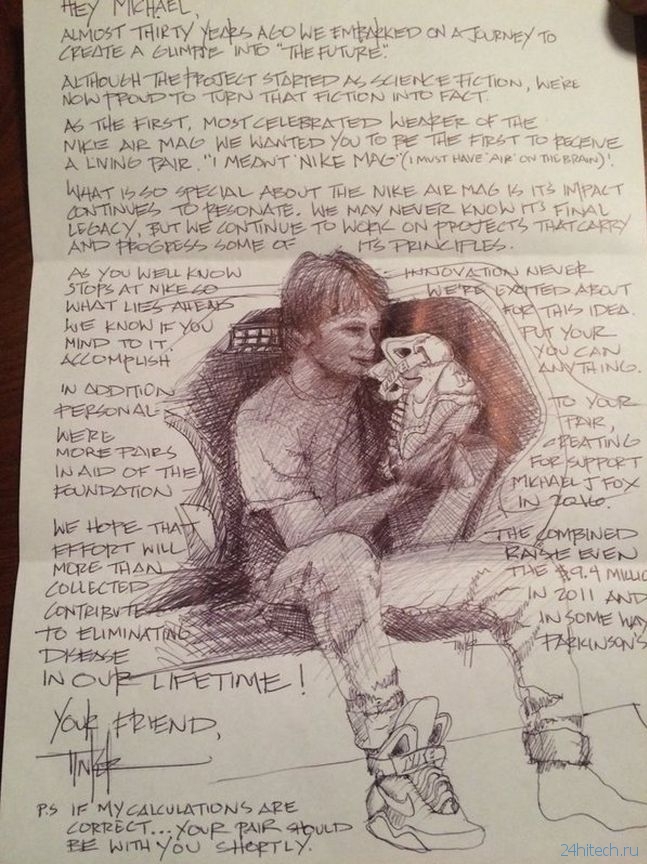 HEY MICHAEL,
ALMOST THIRTY YEARS AGO WE EMBARKED ON A JOURNEY TO
CREATE A GLIMPSE INTO "THE FUTURE".
ALTHOUGH THE PROJECT STARTED AS SCIENCE FICTION, WE'RE
NOW PROUD TO TURN THAT FICTION INTO FACT.
AS THE FIRST, MOST CELEBRATED WEARER OF THE
NIKE AIR MAG WE WANTED YOU TO BE THE FIRST TO RECEIVE
A LIVING PAIR. "I MEANT 'NIKE MAG' (I MUST HAVE 'AIR' ON THE BRAIN)!
WHAT IS SO SPECIAL ABOUT THE NIKE AIR MAG IS IT'S IMPACT
CONTINUES TO RESONATE. WE MAY NEVER KNOW IT'S FINAL
LEGACY, BUT WE CONTINUE TO WORK ON PROJECTS THAT CARRY
AND PROGRESS SOME OF ITS PRINCIPLES.
AS YOU WELL KNOW INNOVATION NEVER
STOPS AT NIKE SO WE'RE EXCITED ABOUT
WHAT LIES AHEAD FOR THIS IDEA.
WE KNOW IF YOU PUT YOUR
MIND TO IT. YOU CAN
ACCOMPLISH ANYTHING.
IN ADDITION TO YOUR
PERSONAL PAIR,
WE'RE CREATING
MORE PAIRS FOR SUPPORT
IN AID OF THE MICHAEL J FOX
FOUNDATION IN 2016.
WE HOPE THAT THE COMBINED
EFFORT WILL RAISE EVEN
MORE THAN THE $9.4 MILLIO
COLLECTED IN 2011 AND
CONTRIBUTE IN SOME WAY
TO ELIMINATING PARKINSON'S
DISEASE TINKER
IN OUR LIFETIME!
YOUR FRIEND,
TINKER
P.S IF MY CALCULATIONS ARE
CORRECT...YOUR PAIR SHOULD
BE WITH YOU SHORTLY.
24hitech.ru